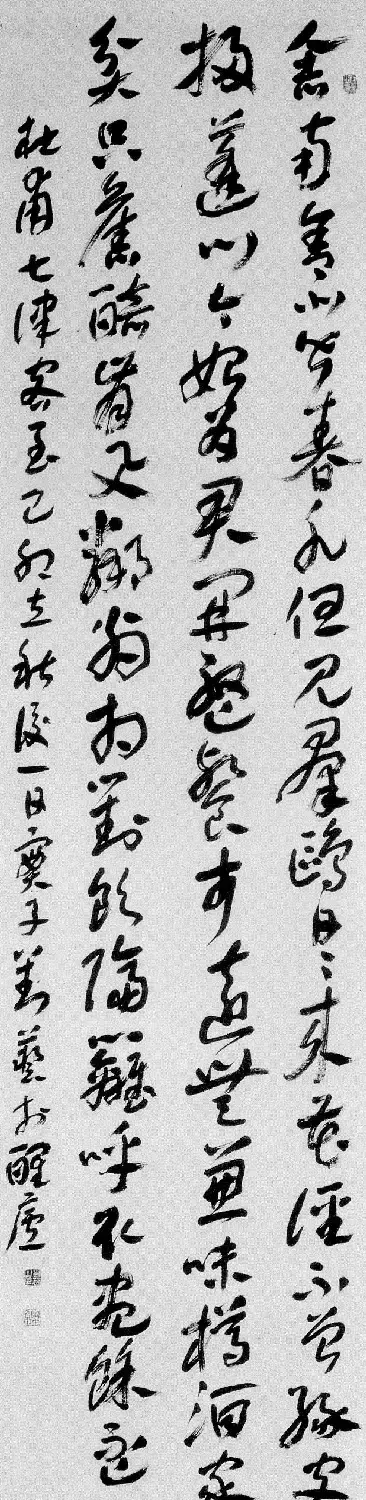 舍南舍北皆春水但見群鷗日日來花徑不曾緣客
掃蓬門今始為君開盤餐市遠無兼味樽酒家
貧只舊醅肯與鄰翁相對飲隔籬呼取盡餘杯
杜甫七律客至己卯立秋後一日寞子對藝於醒廬